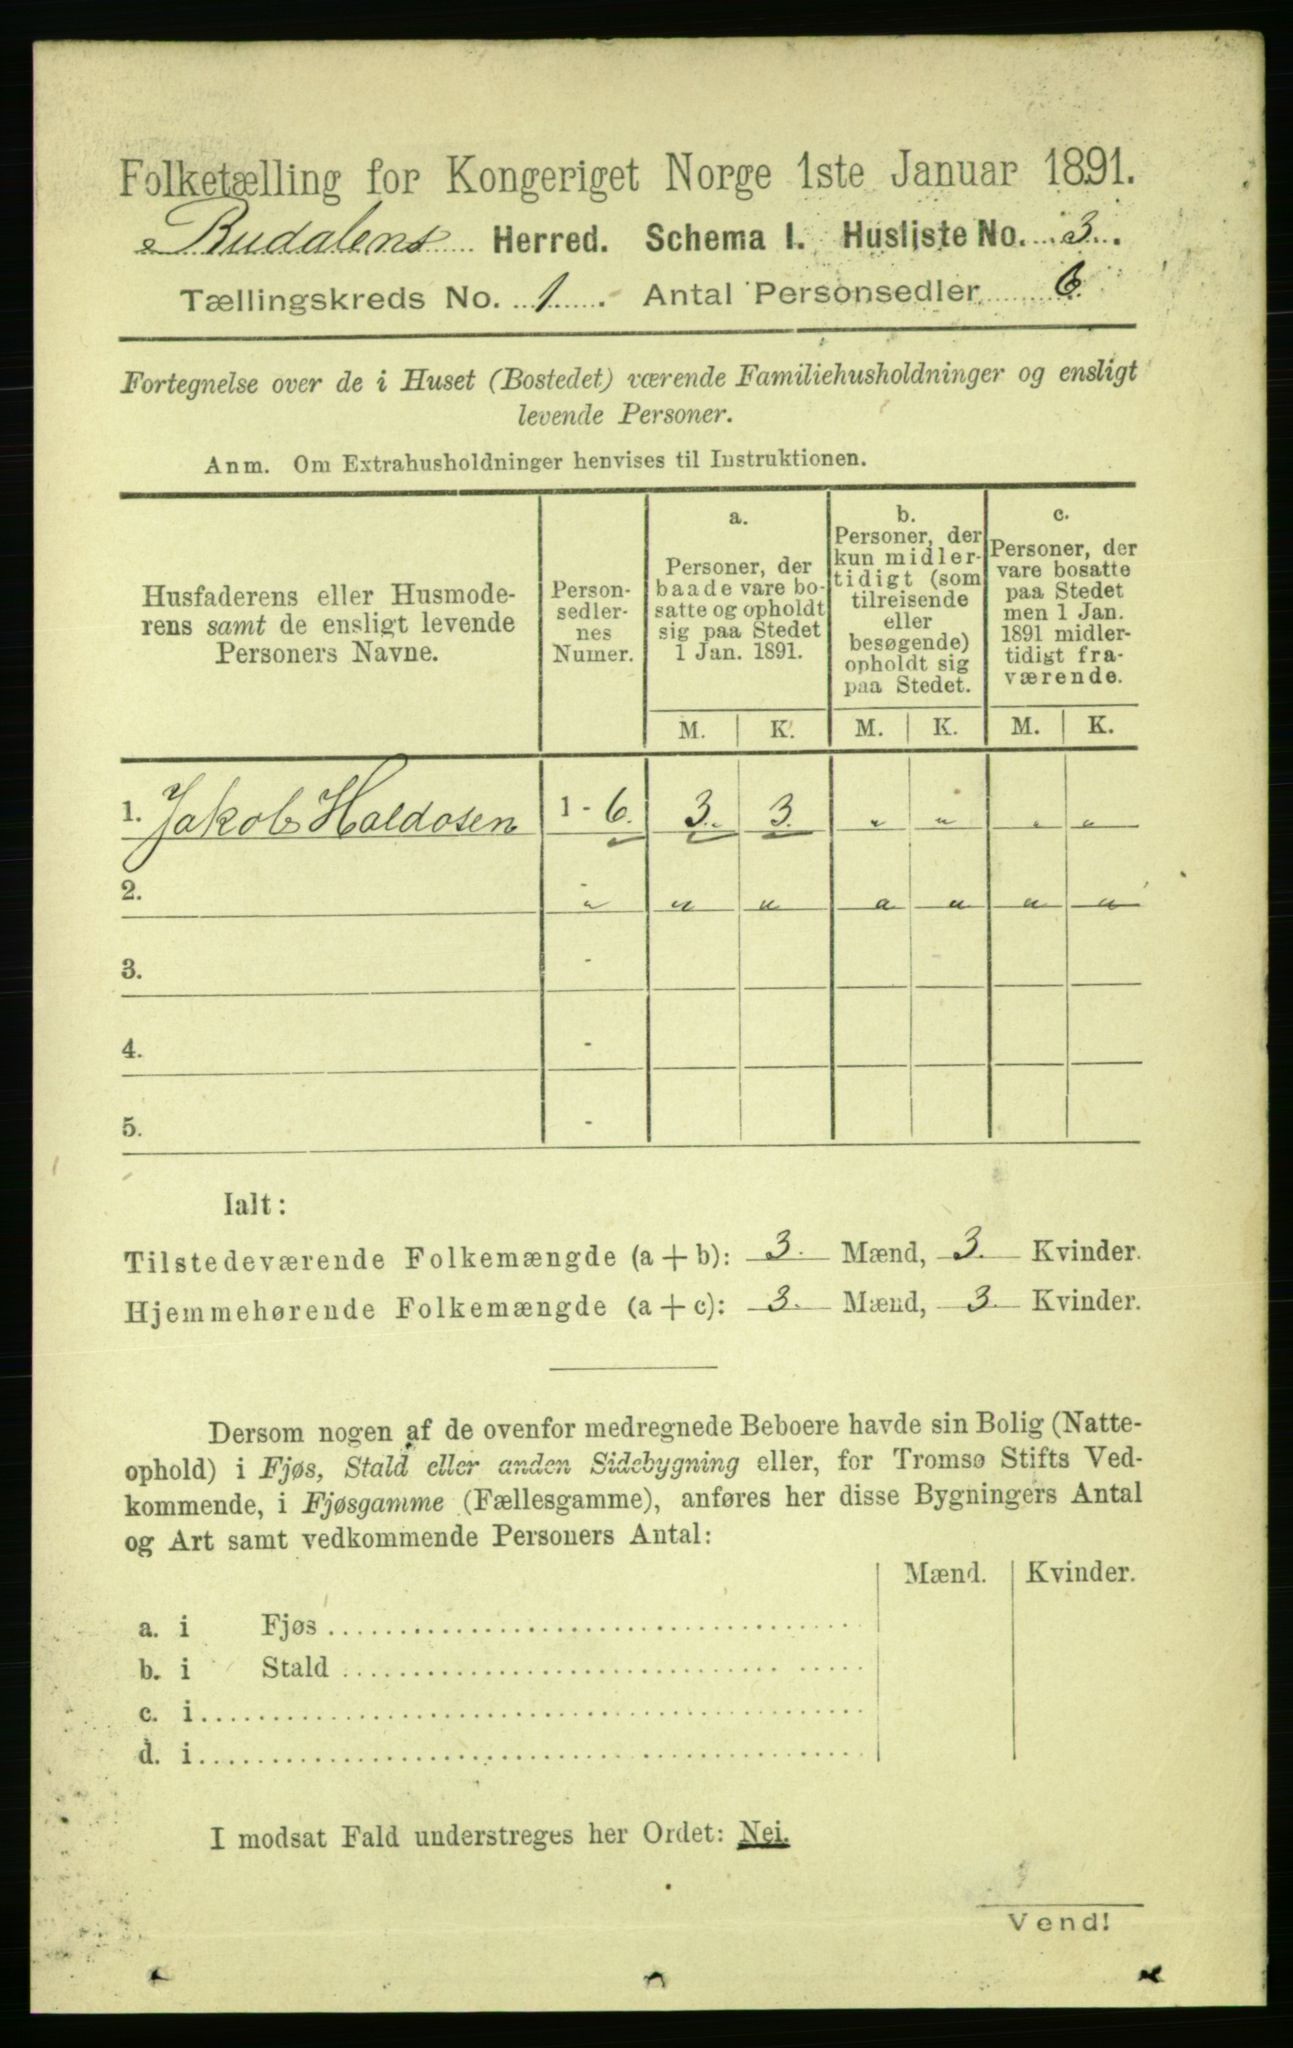 Folketælling for Kongeriget Norge 1ste Januar 1891.
Budalens Herred. Schema I. Husliste No. 3.
Tællingskreds No. 1. Antal Personsedler 6.
Fortegnelse over de i Huset (Bostedet) værende Familiehusholdninger og ensligt
levende Personer.
Anm. Om Extrahusholdninger henvises til Instruktionen.
Husfaderens eller Husmode-
rens samt de ensligt levende
Personers Navne.
Person-
sedler-
nes
Numer.
a.
Personer, der
baade vare bo-
satte og opholdt
sig paa Stedet
1 Jan. 1891.
b.
Personer, der
kun midler-
tidigt (som
tilreisende
eller
besøgende)
opholdt sig
paa Stedet.
c.
Personer, der
vare bosatte
paa Stedet
men 1 Jan.
1891 midler-
tidigt fra-
værende.
M. K. M. K. M. K.
1. Jakob Haldosen 1 - 6. 3. 3. " " " "
2. " " " " " " "
3. -
4. -
5. -
Ialt:
Tilstedeværende Folkemængde (a + b): 3. Mænd, 3. Kvinder.
Hjemmehørende Folkemængde (a + c): 3. Mænd, 3. Kvinder.
Dersom nogen af de ovenfor medregnede Beboere havde sin Bolig (Natte-
ophold) i Fjøs, Stald eller anden Sidebygning eller, for Tromsø Stifts Ved-
kommende, i Fjøsgamme (Fællesgamme), anføres her disse Bygningers Antal
og Art samt vedkommende Personers Antal:
Mænd. Kvinder.
a. i Fjøs
b. i Stald
c. i
d. i
I modsat Fald understreges her Ordet: Nei.
Vend!